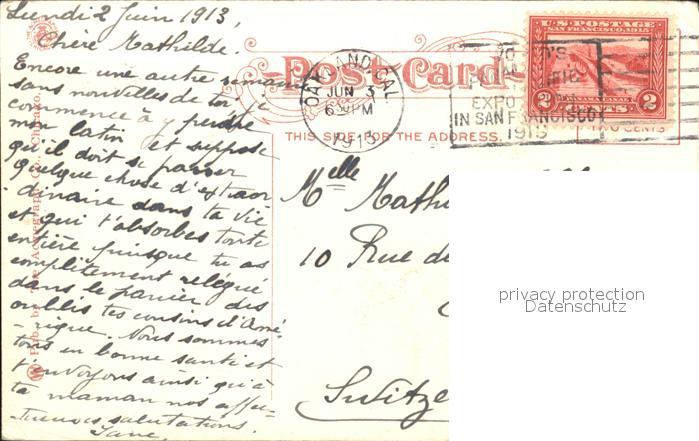 Lundi 2 Juin 1913,
Chère Mathilde.
Encore une autre semaine
sans nouvelles de toi, je
commence à perdre
mon latin et suppose
qu'il doit se passer
quelque chose d'extraor
dinaire dans ta vie
et qui t'absorbes toute
entière puisque tu as
complètement relégué
dans le panier des
oublis tes cousins d'Amé
-rique. Nous sommes
tous en bonne santé et
t'envoyons ainsi qu'à
ta maman nos affec-
tueuses salutations.
Jane.
Post Card
THIS SIDE FOR THE ADDRESS.
OAKLAND, CAL.
JUN 3
6 30 PM
1913
EXPO
IN SAN FRANCISCO
1915
U.S. POSTAGE
SAN FRANCISCO, 1915
PANAMA CANAL
2 CENTS 2
TWO CENTS
Mlle Math
10 Rue de
Switze
Pub. by The Acmegraph Co., Chicago.
privacy protection
Datenschutz